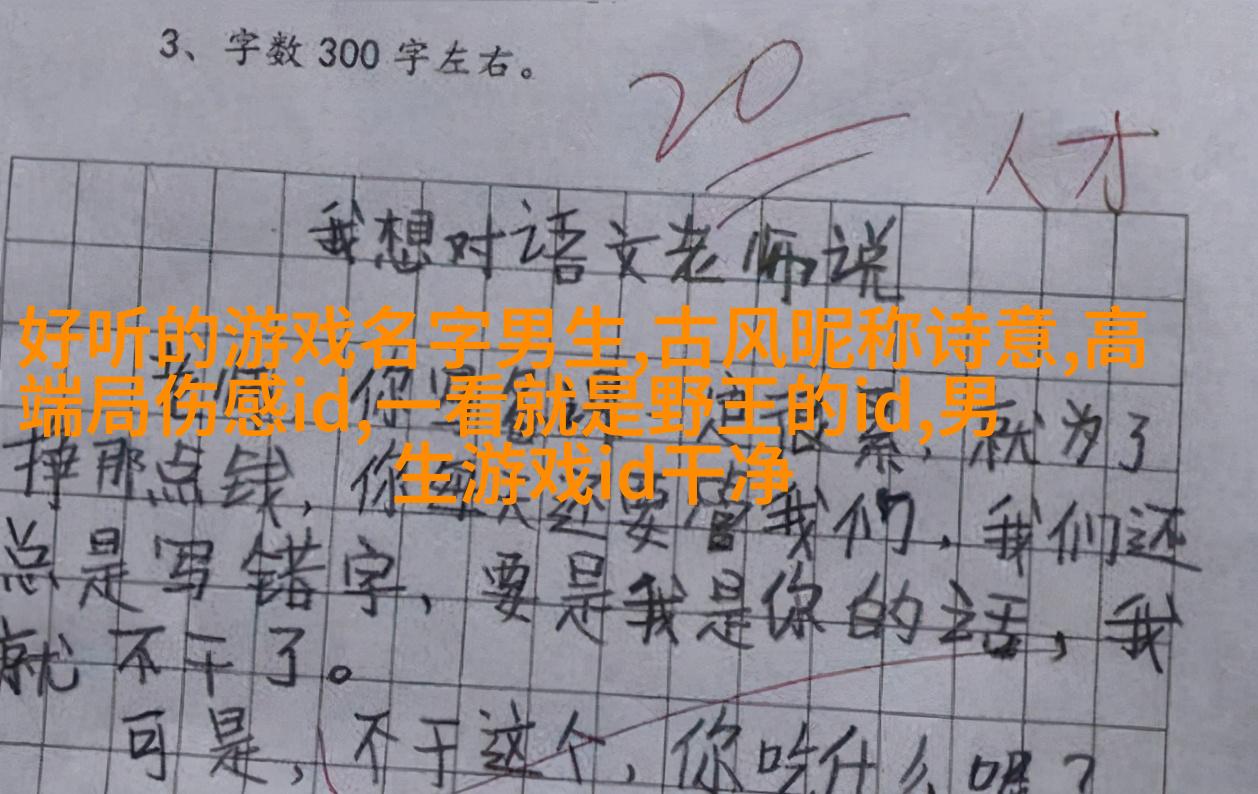 3、字数 300 字左右。
20
人才
我想对语文老师说
好听的游戏名字男生,古风昵称诗意,高
端局伤感id,一看就是野王的id,男
生游戏id干净
累,就为了
挣那点钱,你每天还要管我们,我们还
总是写错字,要是我是你的话,我
就不干了。
可是,不干这个,你吃什么呢?